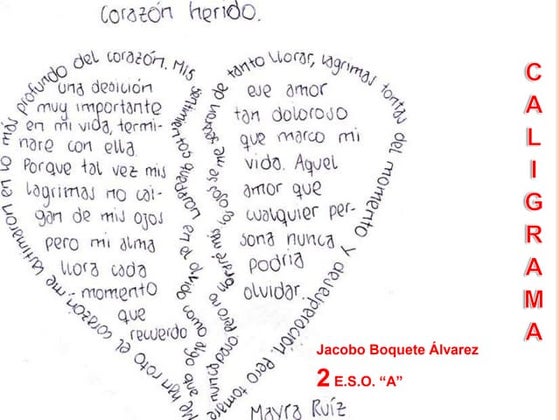 Corazón herido.
Me han roto el corazón, me lastimaron en lo más profundo del corazón. Mis
de tanto llorar, lagrimas tontas del momento y desesperación. Pero tomare
una desición
muy importante
en mi vida, termi-
nare con ella
Porque tal vez mis
lagrimas no cai-
gan de mis ojos
pero mi alma
llora cada
momento
que
recuerdo
ese amor
tan doloroso
que marco mi
vida. Aquel
amor que
cualquier per-
sona nunca
podria
olvidar.
Mayra Ruíz
CALIGRAMA
Jacobo Boquete Álvarez
2 E.S.O. “A”